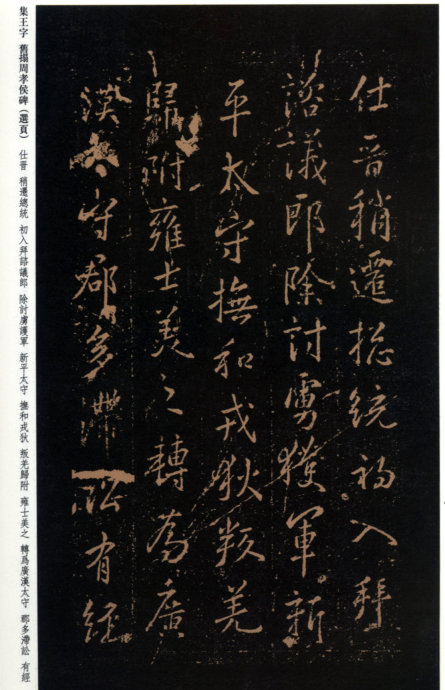 仕晋稍遷捴統初入拜
諮議郎除討虜獲軍新
平太守撫和戎狄叛羌
歸附雍士美之轉為廣
漢太守郡多滯訟有經
集王字 舊搨周孝侯碑（選頁） 仕晋 稍遷總統 初入拜諮議郎 除討虜護軍 新平太守 撫和戎狄 叛羌歸附 雍士美之 轉爲廣漢太守 郡多滯訟 有經